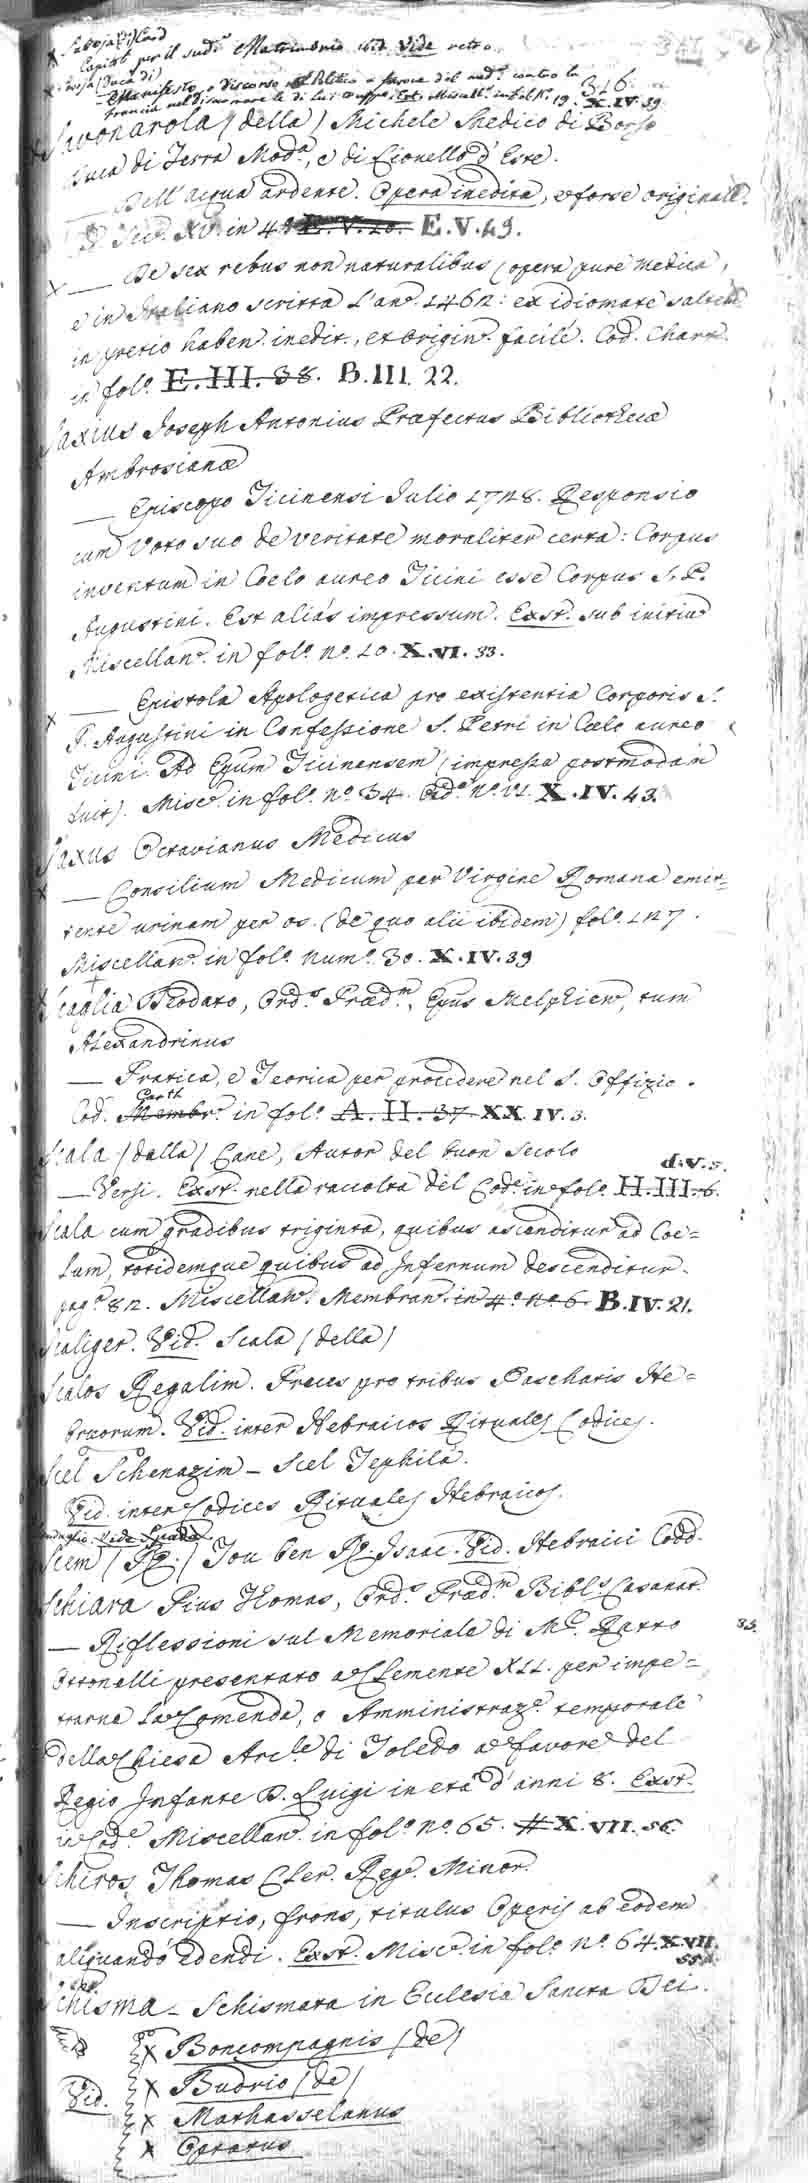 Savoja (di) Card
Capitoli per il sud.º Matrimonio
Vide retro
Savoja (Duca di)
Manifesto, o discorso Politico a favore del med.º contro la
Francia nel
Miscell.º in fol. N.º 19. X.IV.39
316.
Savonarola (della) Michele Medico di Borso
Duca di Ferra Mod.ª, e di Lionello d'Este.
— Dell' acqua ardente. Opera inedita, e forse originale.
Sec.º XV. in 4.º E.V.20. E.V.49.
— De sex rebus non naturalibus (opera pure medica,
e in Italiano scritta l'an.º 1462: ex idiomate saltem
in pretio haben. inedit., et origin.º facile. Cod. Chart.
in fol.º E.III.38. B.III.22.
Saxius Joseph Antonius Præfectus Bibliothecæ
Ambrosianæ
— Episcopo Ticinensi Julio 1728. Responsio
cum Voto suo de veritate moraliter certa: Corpus
inventum in Coelo aureo Ticini esse Corpus S. P.
Augustini. Est aliàs impressum. Exst. sub initiū
Miscellan.º in fol.º n.º 10. X.VI.33.
— Epistola Apologetica pro existentia Corporis S.
P. Augustini in Confessione S. Petri in Cœlo aureo
Ticini. Ad Epum Ticinensem (impressa postmodùm
fuit). Misc.º in fol.º n.º 34. Cod.º n.º VI. X.IV.43.
Saxus Octavianus Medicus
— Consilium Medicum per Virgine Romana emit=
tente urinam per os. (de quo alii ibidem) fol.º 127.
Miscellan.º in fol.º num.º 30. X.IV.39
Scaglia Deodato, Ord.s Præd.m, Epus Melphien, tum
Alexandrinus
— Pratica, e Teorica per procedere nel S. Offizio.
Carth.
Cod. Membr.º in fol.º A.II.37 XX.IV.3.
Scala (dalla) Cane, Autor del buon secolo
d.V.5.
— Versi. Exst. nella raccolta del Cod.º in fol.º H.III.6.
Scala cum gradibus triginta, quibus ascenditur ad Coe=
lum, totidemque quibus ad Infernum descenditur.
pag.ª 82. Miscellan.º Membran.º in 4.º n.º 6. B.IV.21.
Scaliger. Vid. Scala (della)
Scalos Regalim. Preces pro tribus Paschatis He=
bræorum. Vid. inter Hebraicos Rituales Codices.
Scel Schenazim – Scel Tephilà.
Vid. inter Codices Rituales Hebraicos.
Vide Spada.
Scem (R.) Tou ben R. Isaac. Vid. Hebraici Codd.
Schiara Pius Thomas, Ord.s Præd.m Bibl.s Casanat.
— Riflessioni sul Memoriale di M.r Ratto
35.
Ottonelli presentato a Clemente XII. per impe=
trarne la Comenda, o Amministraz.e temporale
della Chiesa Arc.le di Toledo a favore del
Regio Infante D. Luigi in età d'anni 8. Exst.
in Cod.e Miscellan.º in fol.º n.º 65. X.VII.56.
Schiros Thomas Cler. Reg.r Minor.
— Inscriptio, frons, titulus Operis ab eodem
aliquandò edendi. Exst. Misc.º in fol.º n.º 64. X.VII.
55.
Schisma – Schismata in Eclesia Sancta Dei.
Vid.
Boncompagnis (de)
Budrio (de)
Mathasselanus
Optatus